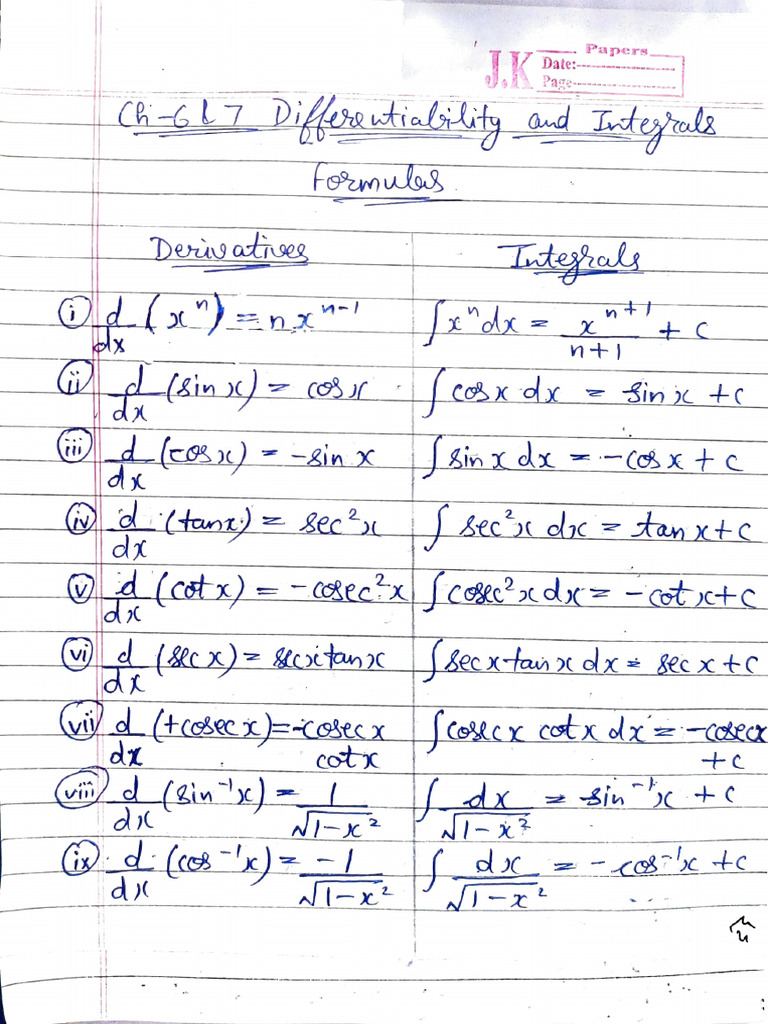 J.K Papers
Date:
Page
Ch-6 & 7 Differentiability and Integrals
Formulas
Derivatives Integrals
(i) d/dx (xⁿ) = nxⁿ⁻¹ ∫xⁿdx = xⁿ⁺¹/n+1 + c
(ii) d/dx (sinx) = cosx ∫cosx dx = sinx + c
(iii) d/dx (cosx) = -sinx ∫sinx dx = -cosx + c
(iv) d/dx (tanx) = sec²x ∫sec²x dx = tanx+c
(v) d/dx (cotx) = -cosec²x ∫cosec²x dx = -cotx+c
(vi) d/dx (secx) = secxtanx ∫secxtanx dx = secx+c
(vii) d/dx (+cosecx)=-cosecx cotx ∫cosecx cotx dx = -cosecx + c
(viii) d/dx (sin⁻¹x) = 1/√1-x² ∫dx/√1-x² = sin⁻¹x + c
(ix) d/dx (cos⁻¹x) = -1/√1-x² ∫dx/√1-x² = -cos⁻¹x + c